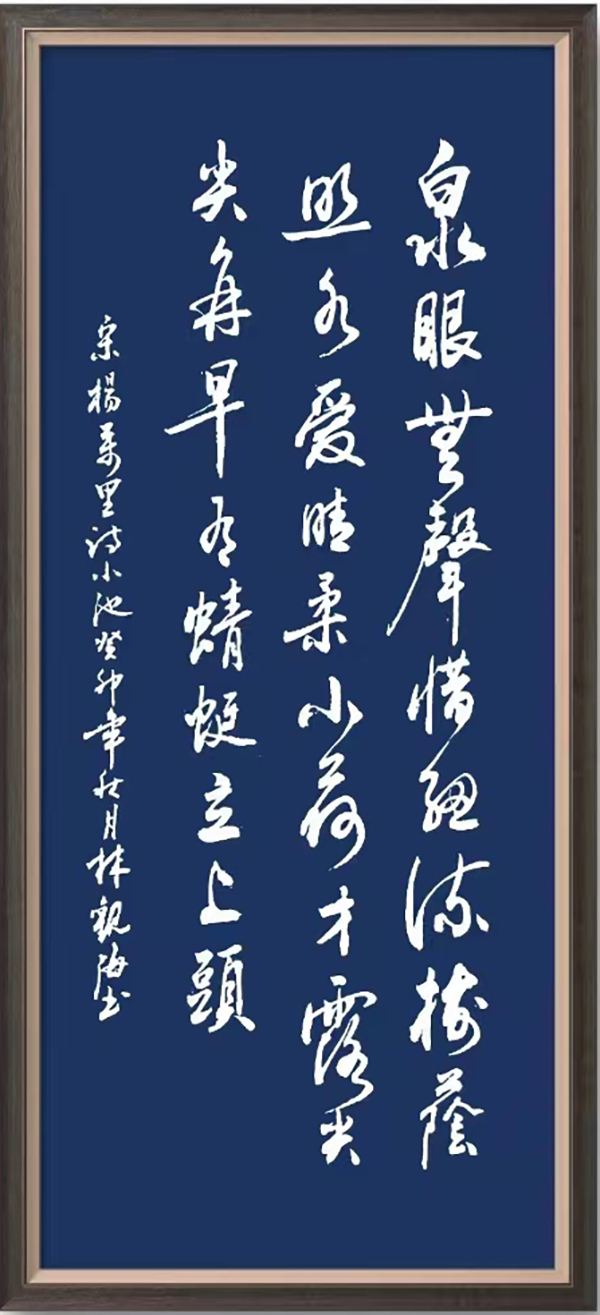 泉眼無聲惜細流樹蔭
照水愛晴柔小荷才露尖
尖角早有蜻蜓立上頭
宋楊萬里詩小池癸卯年秋月林觀海书